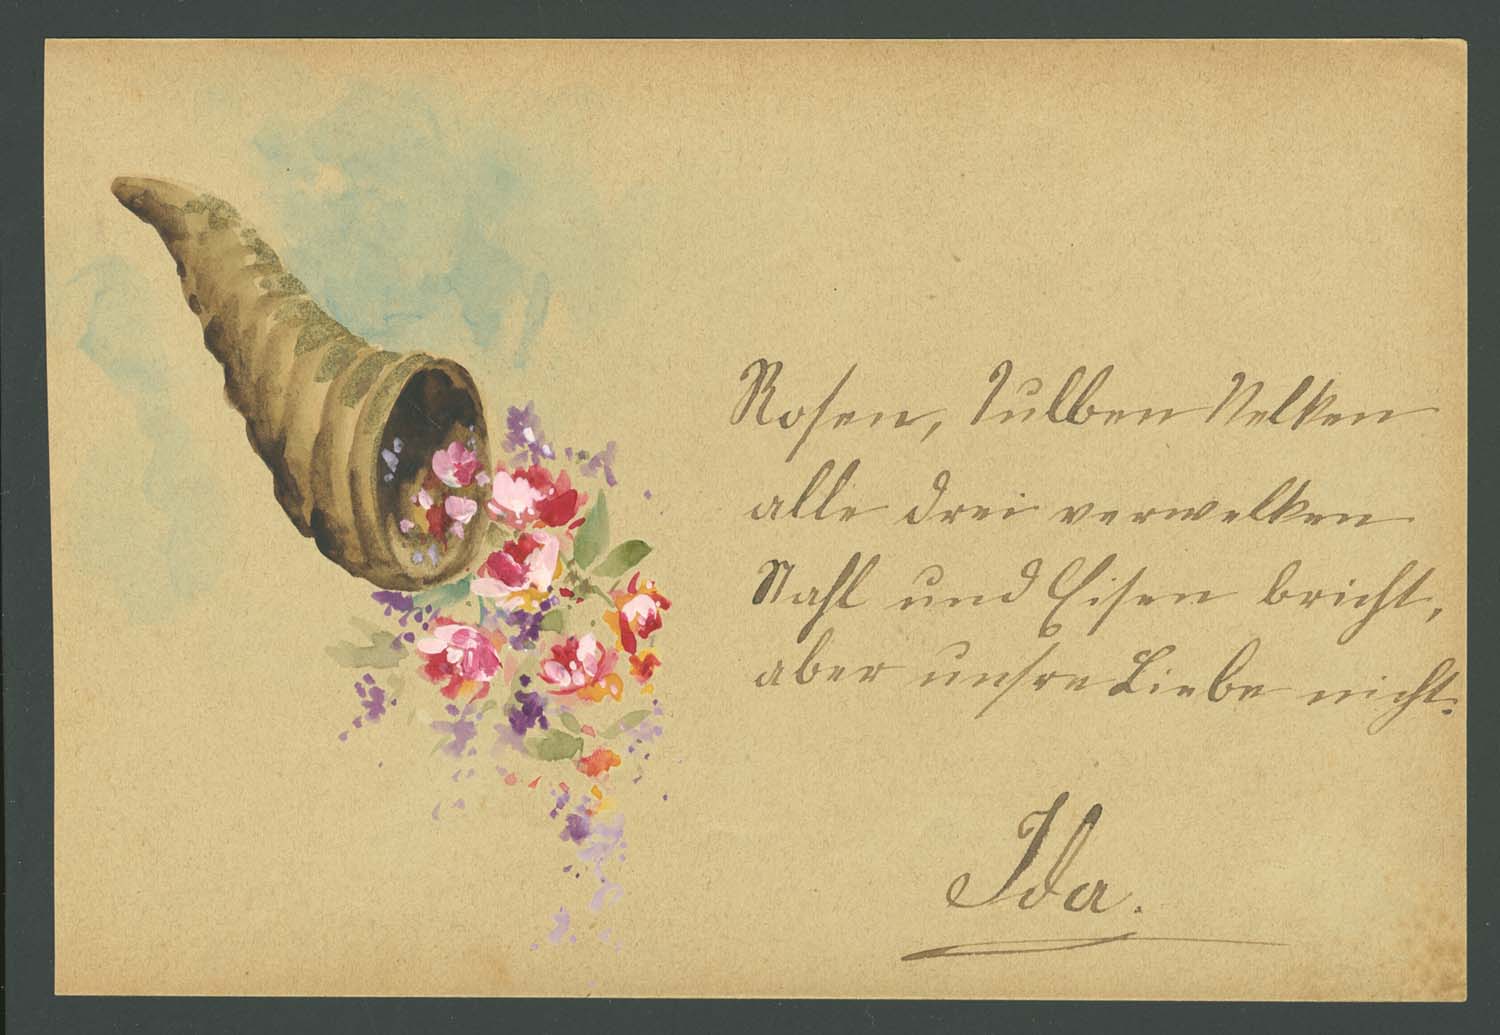 Rosen, Tulben Nelken
alle drei verwelken
Stahl und Eisen bricht,
aber unsre Liebe nicht.
Ida.